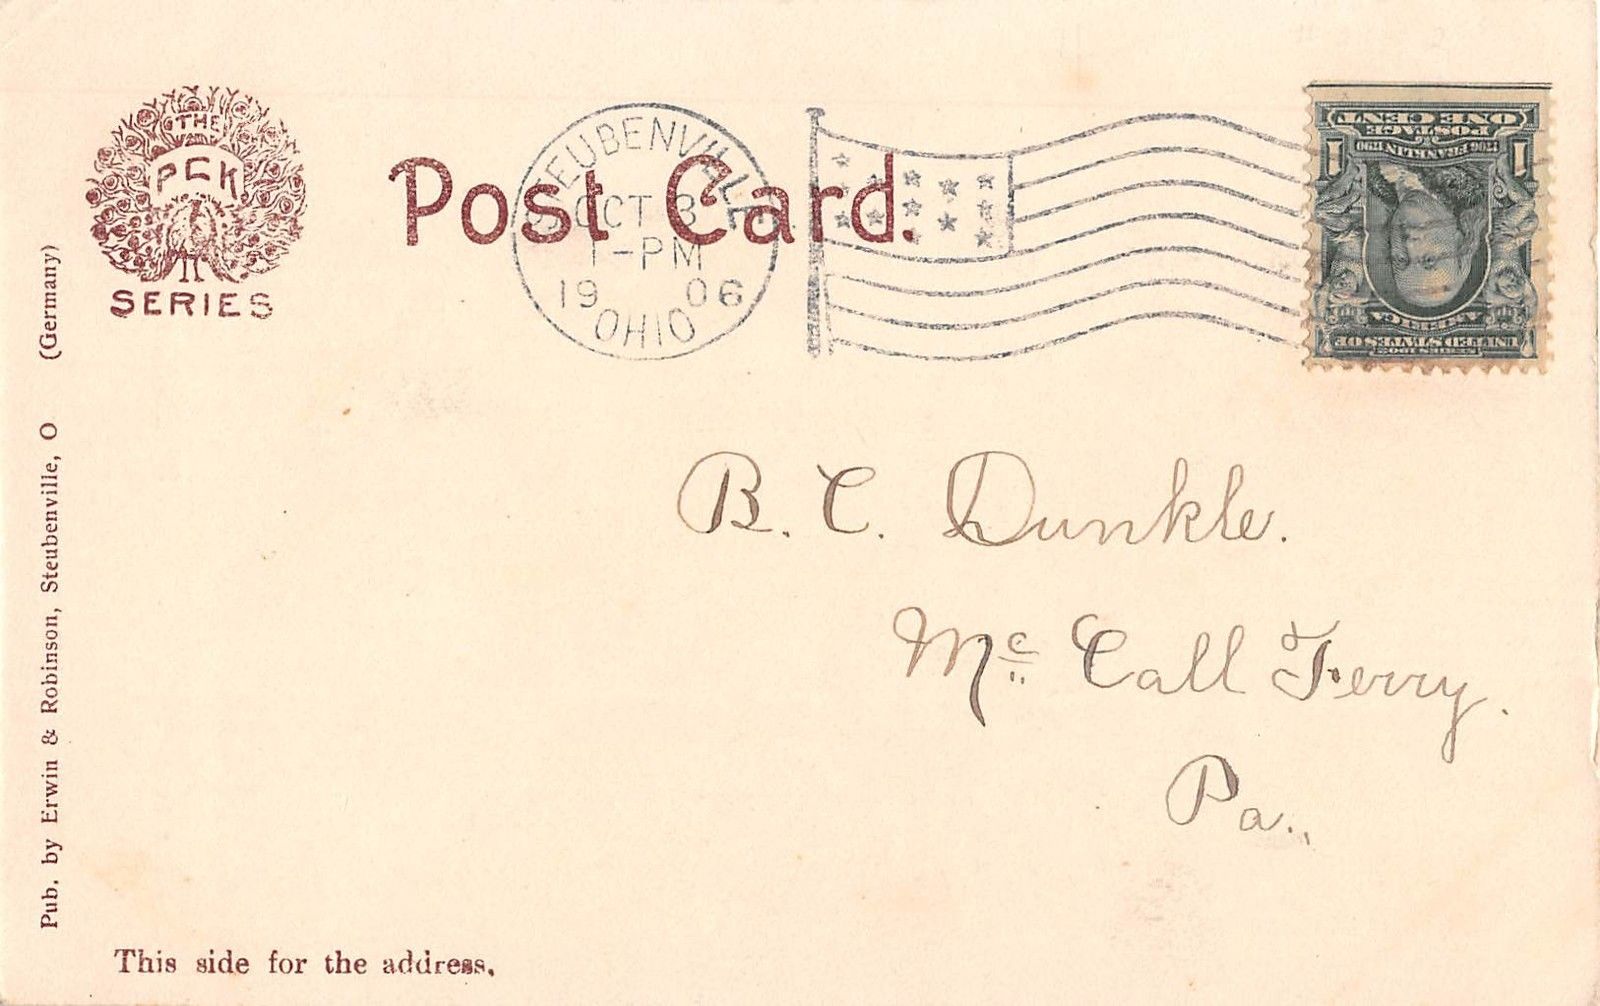 THE
PCK
SERIES
Post Card.
STEUBENVILLE
OCT 3
1-PM
1906
OHIO
ONE CENT
POSTAGE
1706 FRANKLIN 1790
1 1
UNITED STATES OF
AMERICA
SERIES 1902
B. C. Dunkle.
Mc Call Ferry.
Pa.,
Pub. by Erwin & Robinson, Steubenville, O (Germany)
This side for the address.